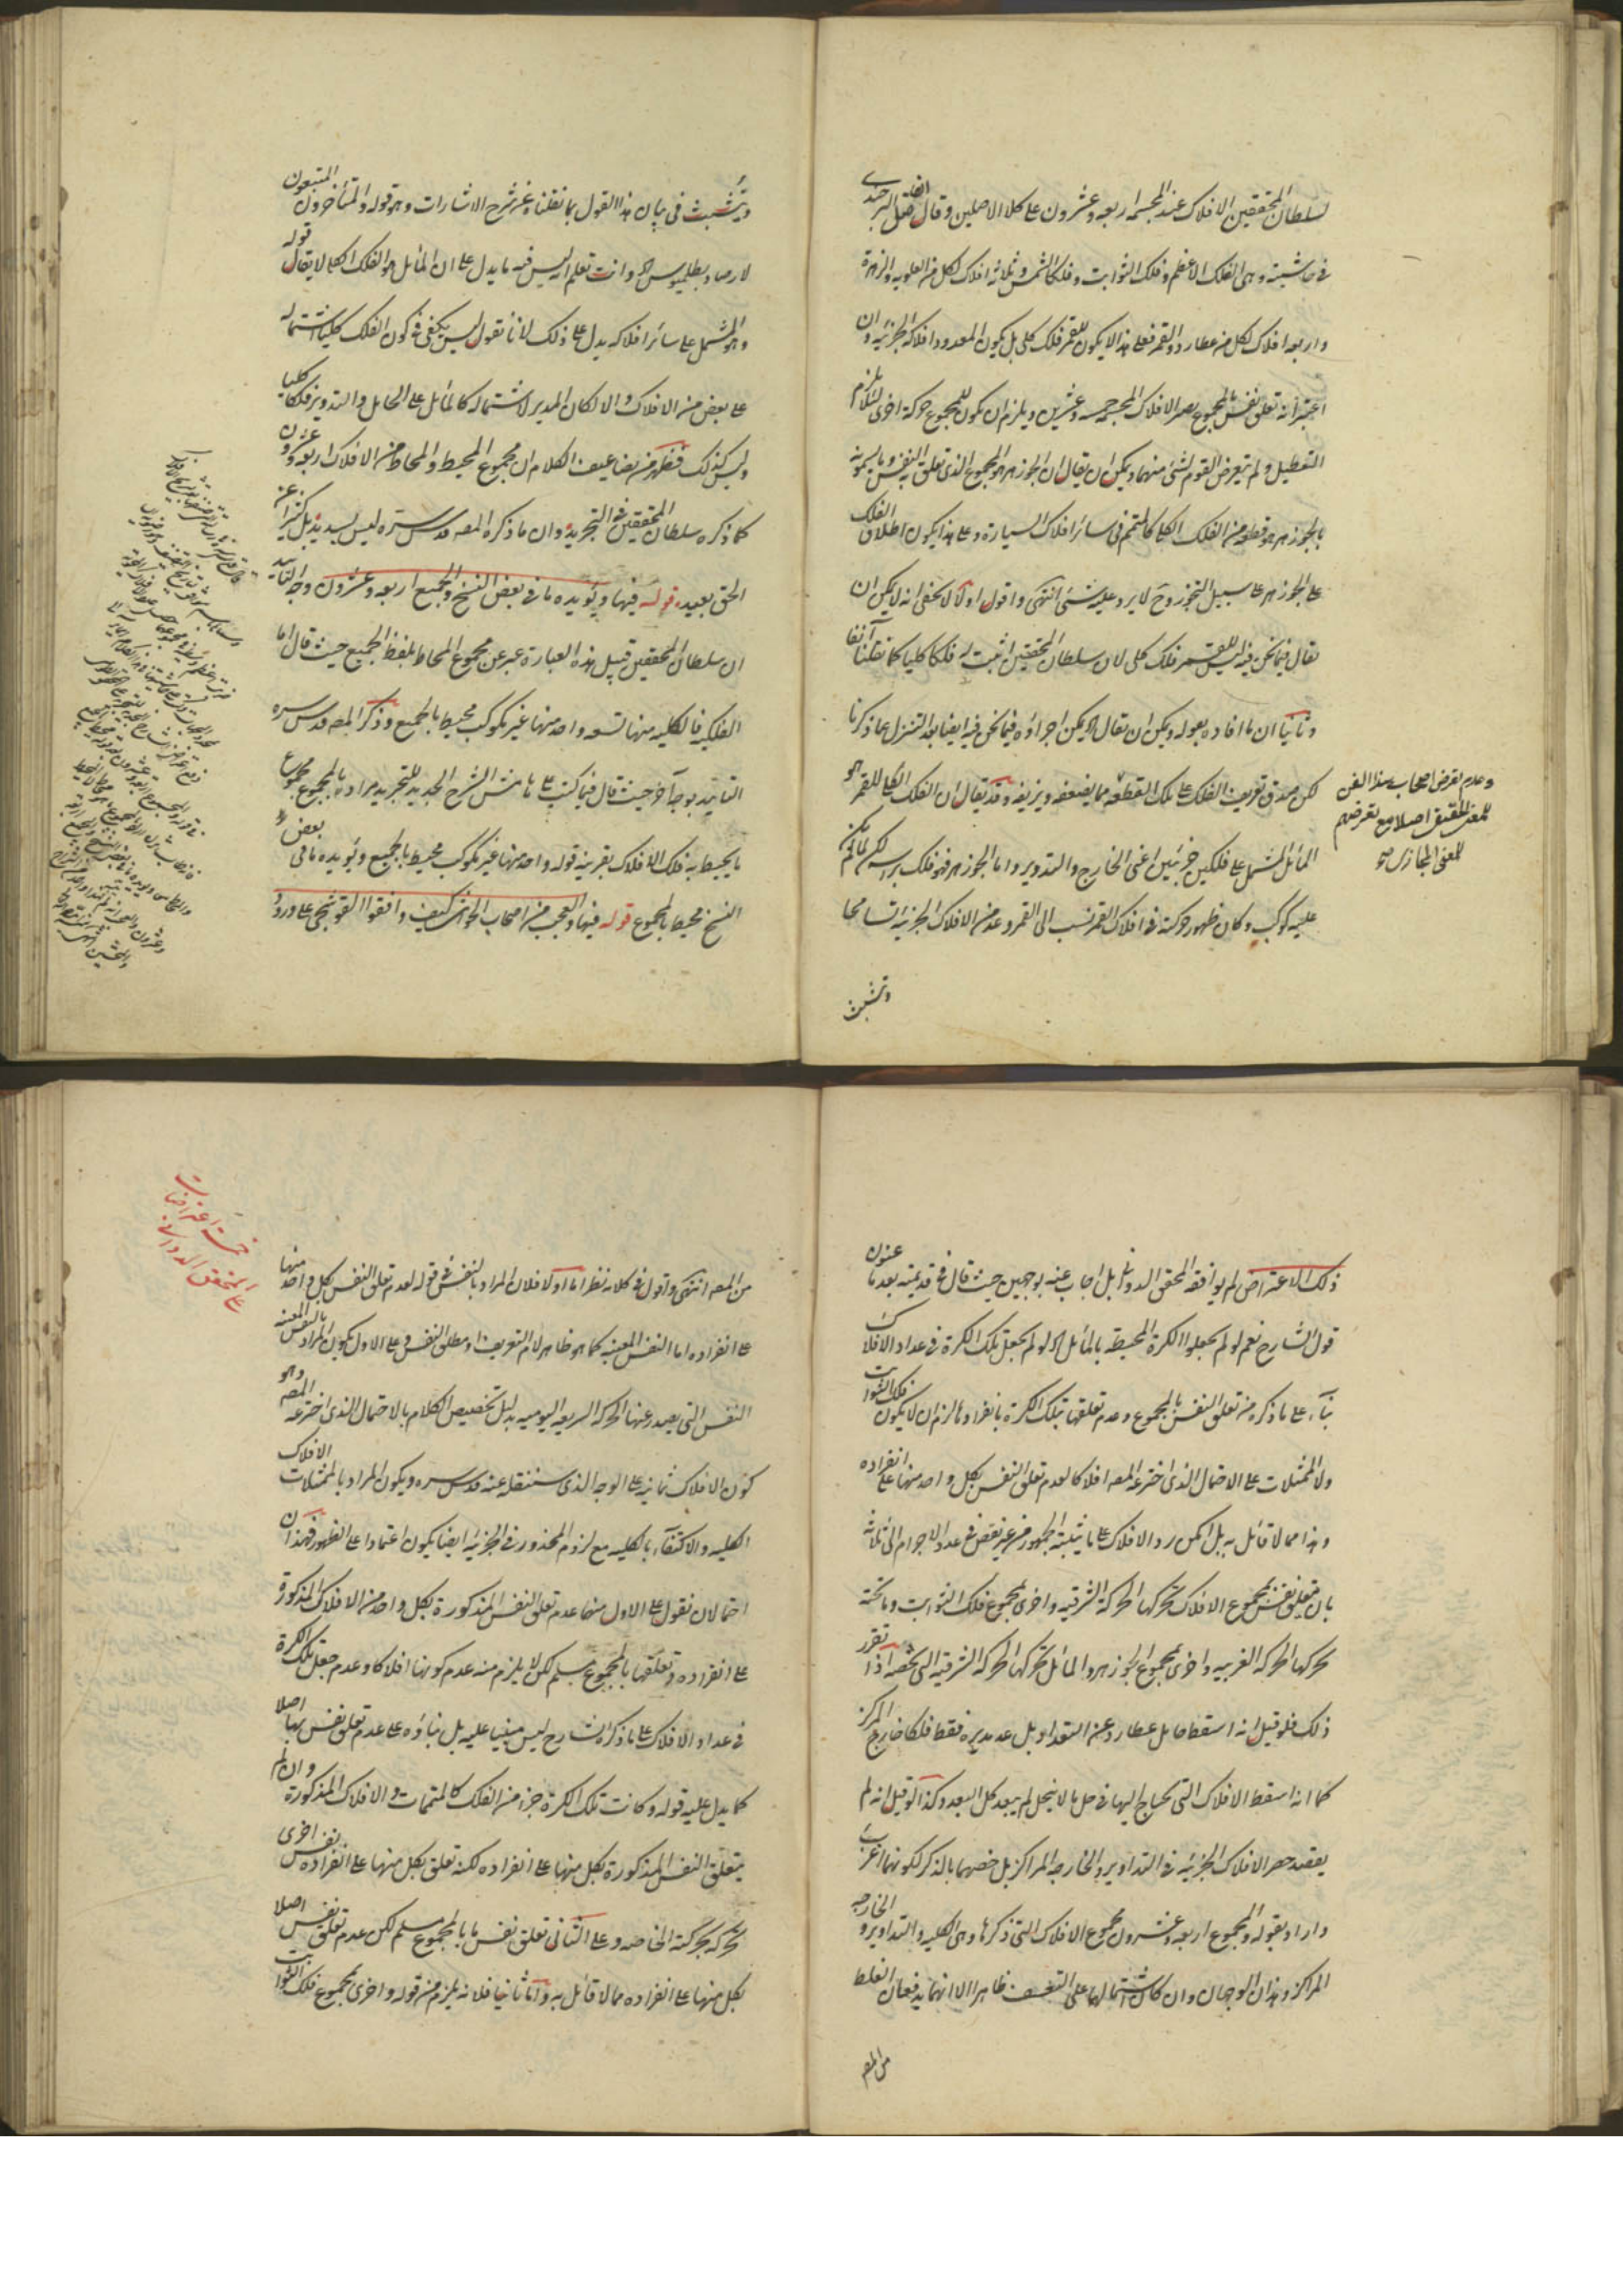 لسلطان المحققين الافلاك عند المجسمه اربعه وعشرون على كلا الاصلين وقال الفاضل البرجندى
فى حاشيته وهى الفلك الاعظم وفلك الثوابت وفلكا الشمس وثلاثه افلاك لكل من العلويه والزهرة
واربعه افلاك لكل من عطارد والقمر فعلى هذا لا يكون للقمر فلك كلى بل يكون المعدود افلاكه الجزئيه وان
اعتبر انه تعلق نفس بالمجموع يصير الافلاك المجسمه خمسه وعشرين ويلزم ان يكون للمجموع حركة اخرى لئلا يلزم
التعطيل ولم يتعرض القوم لشئ منهما ويمكن ان يقال ان الجوزهر هو المجموع الذى تعلق به النفس وما يسمونه
بالجوزهر هو قطعه من الفلك الكلى كالمتمم فى سائر افلاك السيارة وعلى هذا يكون اطلاق الفلك
على الجوزهر على سبيل التجوز وح لا يرد عليه شئ انتهى واقول اولا لا يخفى انه لا يمكن ان
يقال فيما نحن فيه ليس للقمر فلك كلى لان سلطان المحققين اثبت له فلكا كليا كما نقلنا آنفا
وثانيا ان ما افاده بقوله ويمكن ان يقال الخ يمكن اجراؤه فيما نحن فيه ايضا بعد التنزل عما ذكرنا
لكن صدق تعريف الفلك على تلك القطعه مما يضعفه ويزيفه وقد يقال ان الفلك الكلى للقمر هو
المائل المشتمل على فلكين جزئيين اعنى الخارج والتدوير واما الجوزهر فهو فلك براسه لكن لما لم يكن
عليه كوكب وكان ظهور حركته فى افلاك القمر نسب الى القمر وعد من الافلاك الجزئيه تسامحا
وتشبث
وعدم تعرض اصحاب هذا الفن
للمعنى الحقيقى اصلا مع تعرضهم
للمعنى المجازى
وتشبث فى بيان هذا القول بما نقلناه عن شرح الاشارات وهو قوله والمتأخرون المتبعون
لارصاد بطلميوس الخ وانت تعلم انه ليس فيه ما يدل على ان المائل هو الفلك الكلى لا يقال قوله
وهو المشتمل على سائر افلاكه يدل على ذلك لانا نقول ليس يكفى فى كون الفلك كليا اشتماله
على بعض من الافلاك والا لكان المدير لاشتماله كالمائل على الحامل والتدوير فلكا كليا
وليس كذلك فظهر من تضاعيف الكلام ان مجموع المحيط والمحاط من الافلاك اربعه وعشرون
كما ذكره سلطان المحققين فى التجريد وان ما ذكره المصه قدس سره ليس بسديد بل كثيرا عن
الحق بعيد قوله فيها ويؤيده ما فى بعض النسخ والجميع اربعه وعشرون وجه التأييد
ان سلطان المحققين قبيل هذه العبارة عبر عن مجموع المحاط بلفظ الجميع حيث قال اما
الفلكيه فالكليه منها تسعه واحد منها غير مكوكب محيط بالجميع وذكر المصه قدس سره
التأييد بوجه آخر حيث قال فيما كتب على هامش الشرح الجديد للتجريد مراده بالمجموع مجموع
ما يحيط به فلك الافلاك بقرينه قوله واحد منها غير مكوكب محيط بالجميع ويؤيده ما فى بعض
النسخ محيط بالمجموع قوله فيها والعجب من اصحاب الحواشى كيف وافقوا القوشجى على ورود
ذلك الاعتراض لم يوافقه المحقق الدوانى بل اجاب عنه بوجهين حيث قال فى قديمته بعد ما عنون
قول الشارح نعم لو لم يجعلوا الكرة المحيطه بالمائل الخ لو لم يجعل تلك الكرة فى عداد الافلاك
بناء على ما ذكره من تعلق النفس بالمجموع وعدم تعلقها بتلك الكرة بانفرادها لزم ان لا يكون فلك الثوابت
ولا الممثلات على الاحتمال الذى اخترعه المصه افلاكا لعدم تعلق النفس بكل واحد منها على انفراده
وهذا مما لا قائل به بل امكن رد الافلاك على ما يثبته الجمهور من غير نقض فى عدد الاجرام الى ثلاثه
بان تتعلق نفس بمجموع الافلاك تحركها الحركة الشرقيه واخرى بمجموع فلك الثوابت وما تحته
تحركها الحركه الغربيه واخرى بمجموع الجوزهر والمائل تحركها الحركه الشرقيه التى تخصه اذا تقرر
ذلك فلو قيل انه اسقط حامل عطارد عن التعداد بل عد مديره فقط فلكا خارج المركز
كما انه اسقط الافلاك التى يحتاج اليها فى حل ما لا ينحل لم يبعد كل البعد وكذا لو قيل انه لم
يقصد حصر الافلاك الجزئيه فى التداوير والخارجه المراكز بل خصهما بالذكر لكونهما اعرف
واراد بقوله والمجموع اربعه وعشرون مجموع الافلاك التى ذكرها وهى الكليه والتداوير والخارجه
المراكز وهذان الوجهان وان كان اشتمالهما على التعسف ظاهرا الا انهما يدفعان الغلط
من المصه
من المصه انتهى واقول فى كلامه نظر اما اولا فلان المراد بالنفس فى قوله لعدم تعلق النفس بكل واحد منها
على انفراده اما النفس المعينه كما هو ظاهر لام التعريف او مطلق النفس وعلى الاول يكون المراد بالنفس المعينه
النفس التى يصدر عنها الحركه السريعه اليوميه بدليل تخصيص الكلام بالاحتمال الذى اخترعه المصه وهو
كون الافلاك ثمانيه على الوجه الذى سننقله عنه قدس سره ويكون المراد بالممثلات الافلاك
الكليه والاكتفاء بالكليه مع لزوم المحذور فى الجزئيه ايضا يكون اعتمادا على الظهور فهذان
احتمالان نقول على الاول منهما عدم تعلق النفس المذكورة بكل واحد من الافلاك المذكورة
على انفراده وتعلقها بالمجموع مسلم لكن لا يلزم منه عدم كونها افلاكا وعدم جعل تلك الكرة
فى عداد الافلاك على ما ذكره الشارح ليس مبنيا عليه بل بناؤه على عدم تعلق نفس بها اصلا
كما يدل عليه قوله وكانت تلك الكرة جزءا من الفلك كالمتممات والافلاك المذكورة وان لم
يتعلق النفس المذكورة بكل منها على انفراده لكنه تعلق بكل منها على انفراده نفس اخرى
تحركه بحركته الخاصه وعلى الثانى تعلق نفس ما بالمجموع مسلم لكن عدم تعلق نفس اصلا
بكل منها على انفراده مما لا قائل به واما ثانيا فلانه يلزم من قوله واخرى بمجموع فلك الثوابت
خمسة اعتراضات
على المحقق الدوانى